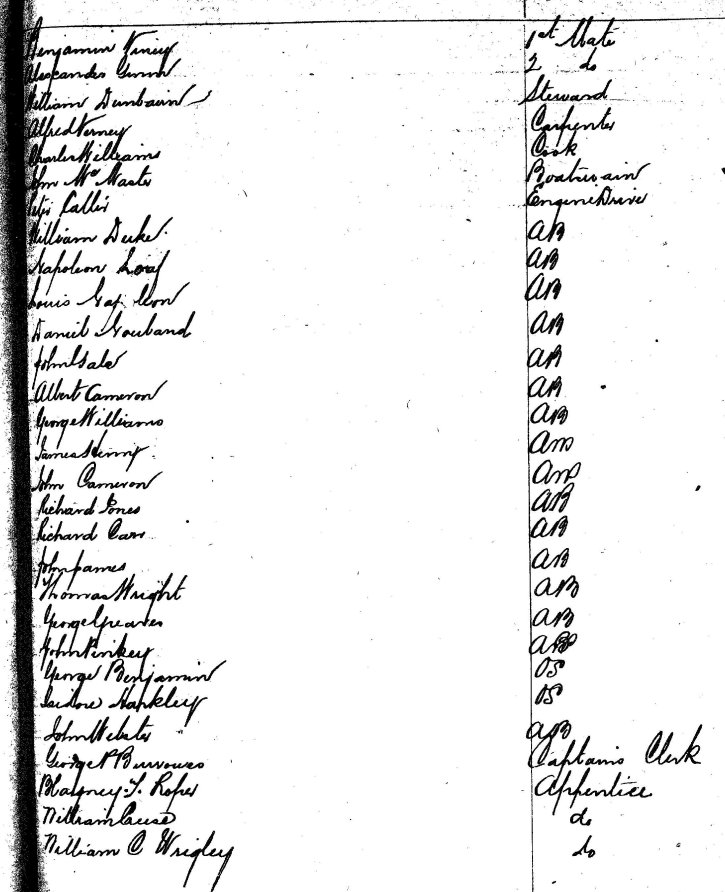 Benjamin 1st Mate
Alexander Gunn 2 do
William Dunbain Steward
Alfred Verney Carpenter
Charles Williams Cook
John McMaster Boatswain
Peter Boatswain EngineDriver
William Duke AB
Napoleon AB
Louis AB
Daniel AB
John Isale AB
Albert Cameron AB
George Williams AB
James Henry
John Cameron
Richard Jones AB
Richard Carr AB
John James AB
Thomas Wright AB
George Greaves AB
John Pinkey AB
George Benjamin OS
Isidore Hankley OS
John Webster AB
George P Burrowes Captains Clerk
Blayney T. Roper Apprentice
William Cause do
William C Wrigley do